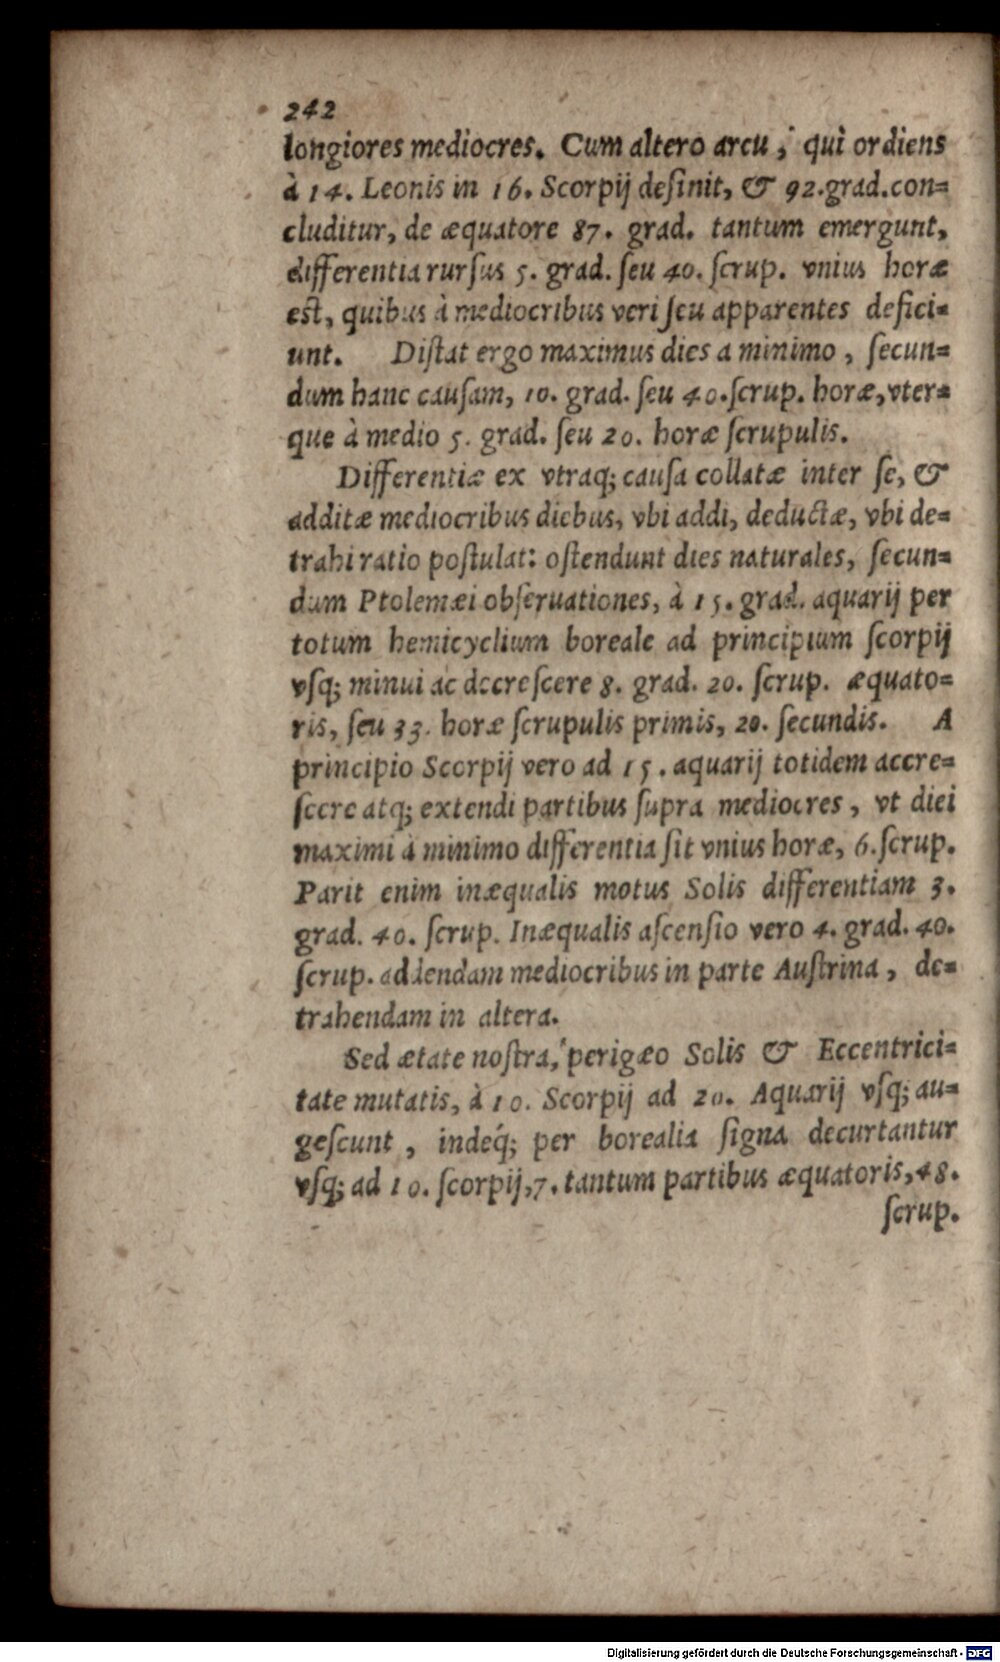 242
longiores mediocres. Cum altero arcu, qui ordiens
à 14. Leonis in 16. Scorpij deſinit, & 92. grad. con=
cluditur, de æquatore 87. grad. tantum emergunt,
differentia rurſus 5. grad. ſeu 40. ſcrup. vnius horæ
eſt, quibus à mediocribus veri ſeu apparentes defici=
unt. Diſtat ergo maximus dies a minimo, ſecun=
dum hanc cauſam, 10. grad. ſeu 40. ſcrup. horæ, vter=
que à medio 5. grad. ſeu 20. horæ ſcrupulis.
Differentiæ ex vtraq; cauſa collatæ inter ſe, &
additæ mediocribus diebus, vbi addi, deductæ, vbi de=
trahi ratio poſtulat: oſtendunt dies naturales, ſecun=
dum Ptolemæi obſeruationes, à 15. grad. aquarij per
totum hemicyclium boreale ad principium ſcorpij
vſq; minui ac decreſcere 8. grad. 20. ſcrup. æquato=
ris, ſeu 33. horæ ſcrupulis primis, 20. ſecundis. A
principio Scorpij vero ad 15. aquarij totidem accre=
ſcere atq; extendi partibus ſupra mediocres, vt diei
maximi à minimo differentia ſit vnius horæ, 6. ſcrup.
Parit enim inæqualis motus Solis differentiam 3.
grad. 40. ſcrup. Inæqualis aſcenſio vero 4. grad. 40.
ſcrup. addendam mediocribus in parte Auſtrina, de=
trahendam in altera.
Sed ætate noſtra, perigæo Solis & Eccentrici=
tate mutatis, à 10. Scorpij ad 20. Aquarij vſq; au=
geſcunt, indeq́; per borealia ſigna decurtantur
vſq; ad 10. ſcorpij, 7. tantum partibus æquatoris, 48.
ſcrup.
Digitalisierung gefördert durch die Deutsche Forschungsgemeinschaft - DFG